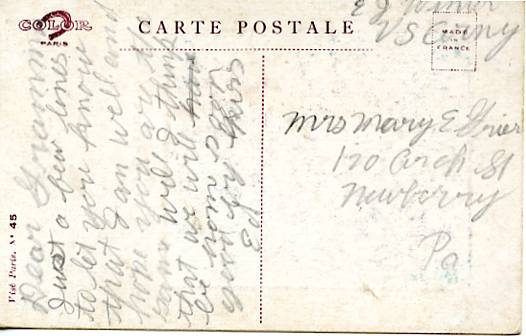 COLOR
PARIS
CARTE POSTALE
MADE
IN
FRANCE
E J
US Army
Mrs Mary E Grier
120 Arch St
Newberry
Pa
Dear
Just a few lines
to let you know
that I am well and
hope you are the
same well I think
that we will
be home
Visé Paris, Nº 45